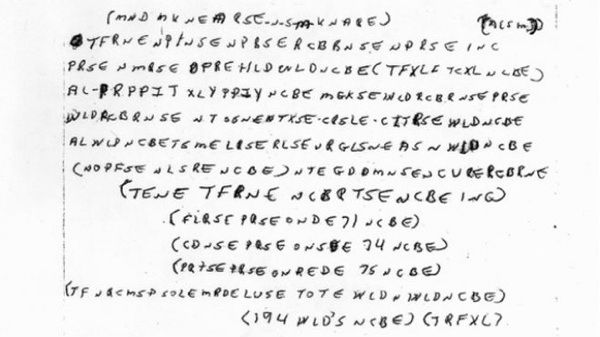 (MND MKNEARSE-N-S-TAKNARE) (ACSM)
TFRNENPTNSENPRSERCBRNSENPRSE INC
PRSENMRSE OPREHLDWLDNCBE(TFXLF TCXLNCBE)
AL-PRPPIT XLYPPIYNCBE MGKSEWLDRCBRNSEPRSE
WLDRCBRNSE NTSGNENTXSE-CRSLE-CITRSEWLDNCBE
ALWLDNCBETSMELRSERLSENRGLSNEASNWLDNCBE
(NOPFSENLSRENCBE)NTEGDDMNSENCURERCBRNE
(TENE TFRNE NCBRTSENCBEING)
(FLRSEPRSEONDE71NCBE)
(CDNSEPRSEONSDE74NCBE)
(PRTSEPRSEONREDE75NCBE)
(TFNRCMSPSOLEMRDELUSE TOTE WLDNWLDNCBE)
(194 WLD'S NCBE)(TRFXL)